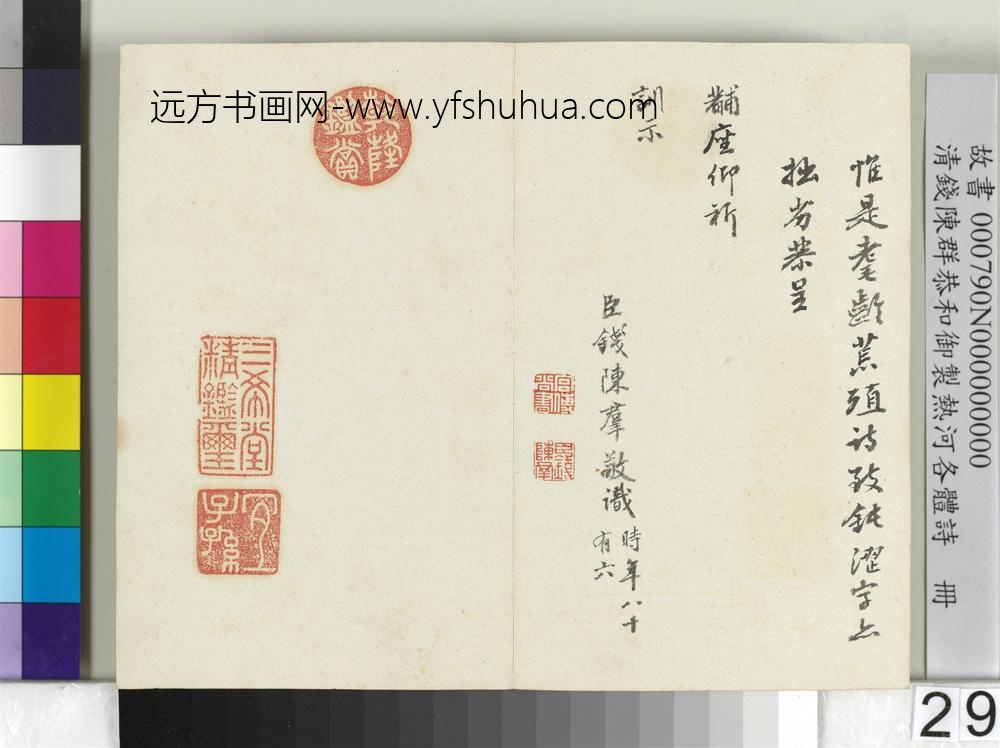 远方书画网-www.yfshuhua.com
故書 000790N000000000
清錢陳群恭和御製熱河各體詩 冊
惟是耄齡荒殖詩致鈍澀字亦
拙劣恭呈
黼座仰祈
訓示
臣錢陳羣敬識 時年八十
有六
宮傅尚書
臣錢陳羣
乾隆鑑賞
三希堂精鑑璽
宜子孫
29